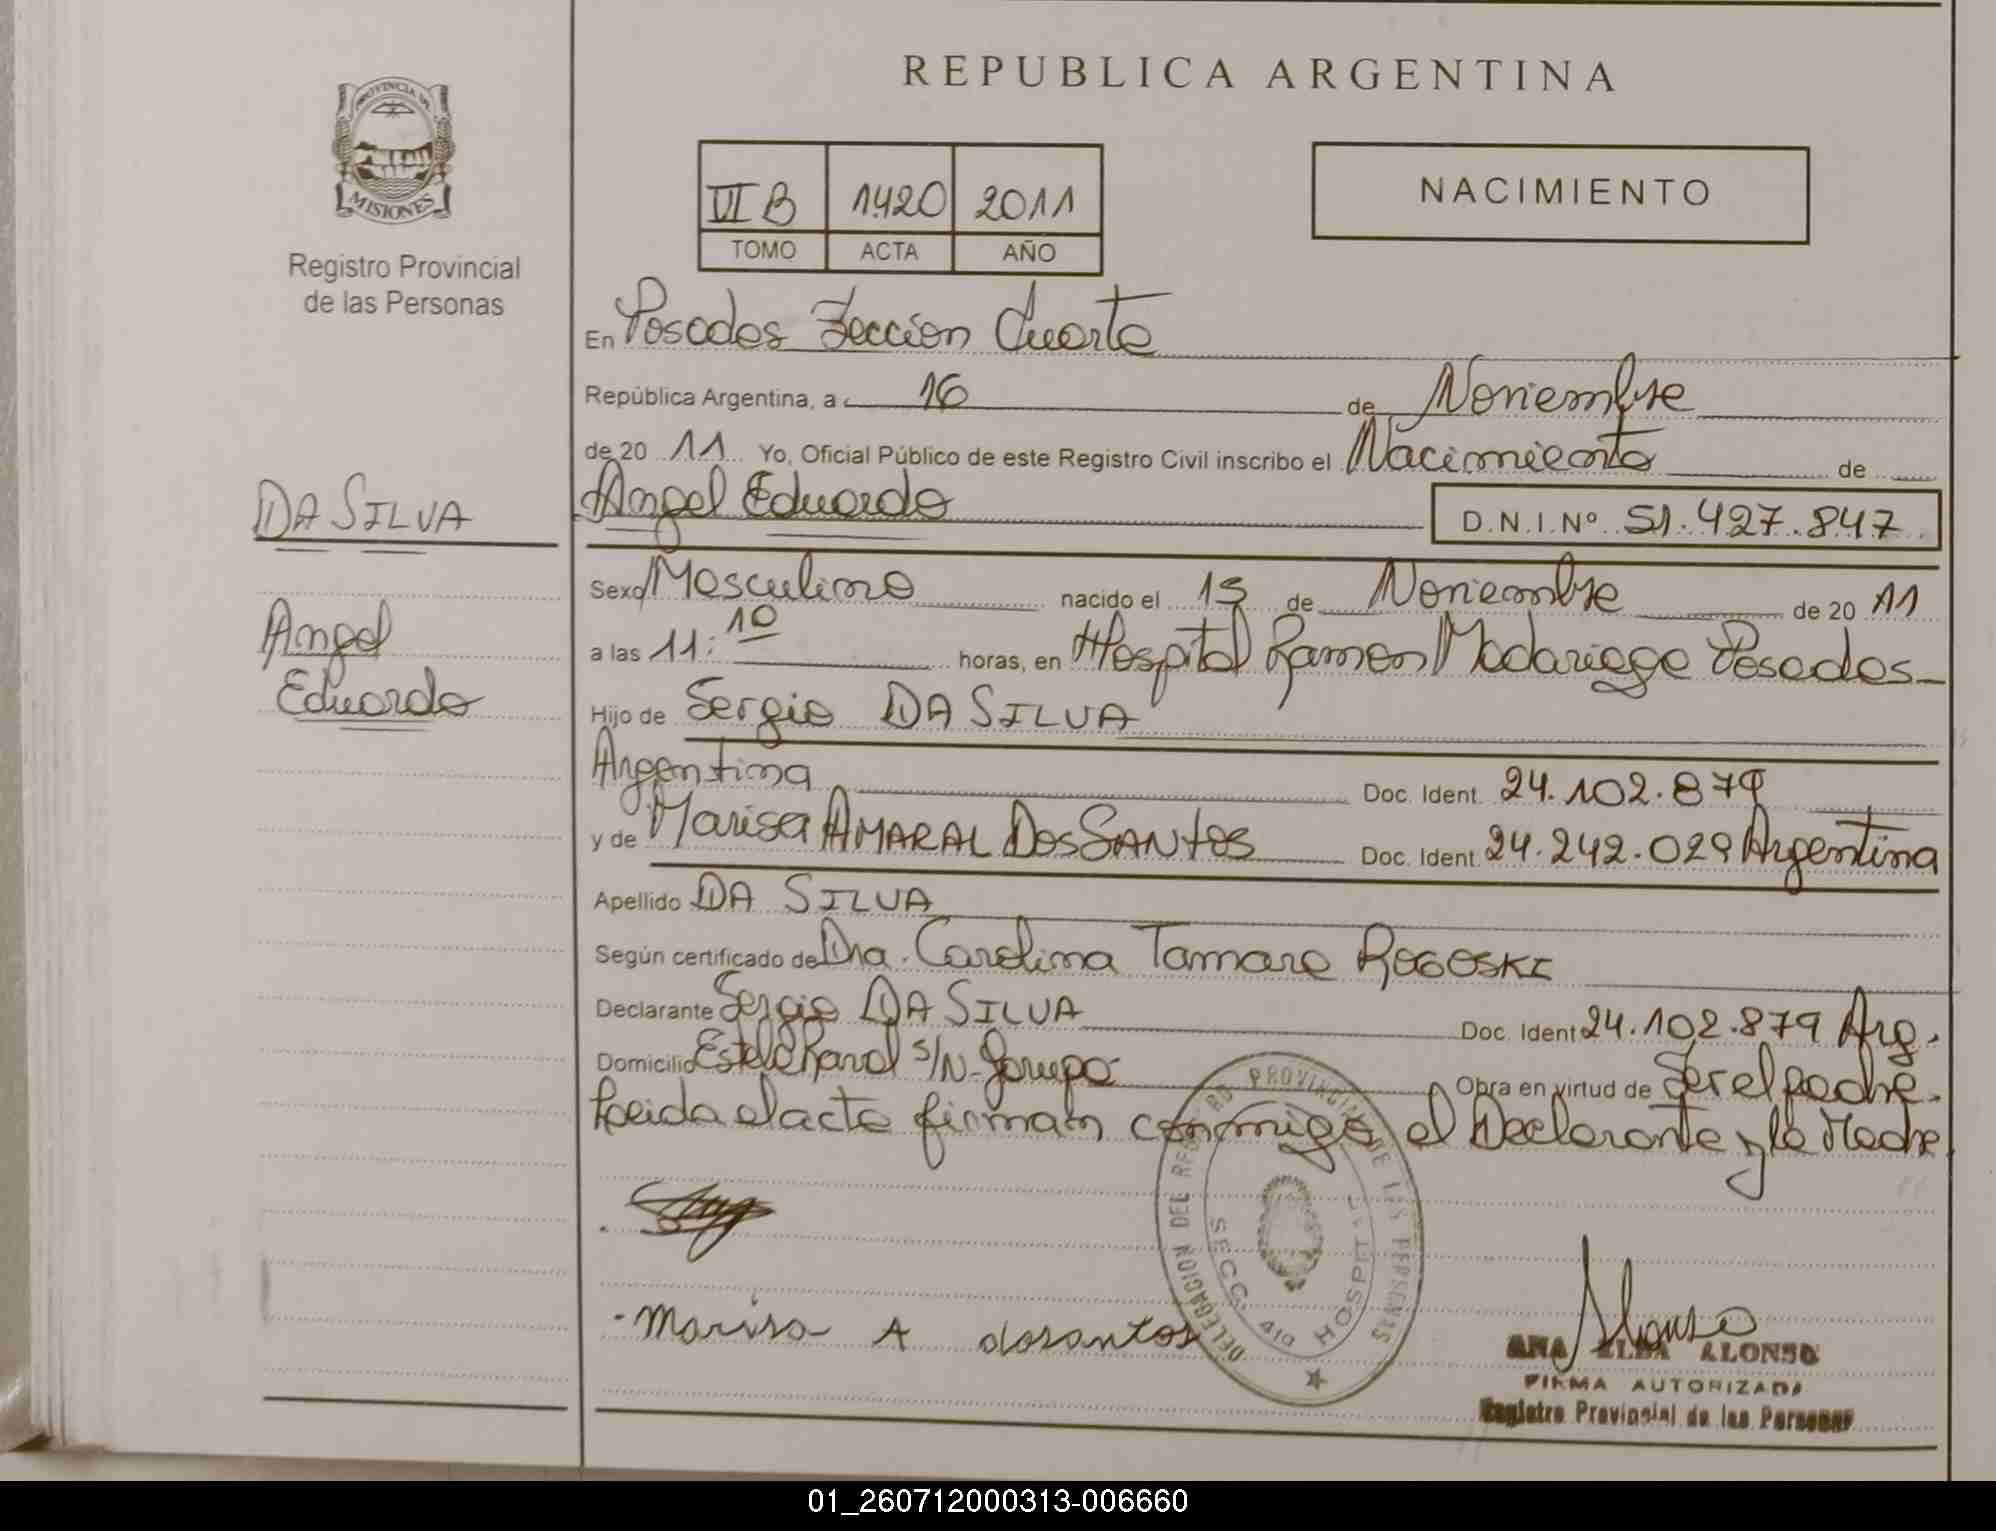 REPUBLICA ARGENTINA
PROVINCIA DE
MISIONES
Registro Provincial
de las Personas
VI B 1420 2011
TOMO ACTA AÑO
NACIMIENTO
En Posadas Seccion Cuarta
República Argentina, a 16 de Noviembre
de 20 11 Yo, Oficial Público de este Registro Civil inscribo el Nacimiento de
Angel Eduardo D.N.I.Nº 51.427.847
DA SILVA
Angel
Eduardo
Sexo Masculino nacido el 15 de Noviembre de 20 11
a las 11:10 horas, en Hospital Ramon Madariaga Posadas
Hijo de Sergio DA SILVA
Argentina Doc. Ident. 24.102.879
y de Marisa AMARAL DOS SANTOS Doc. Ident. 24.242.029 Argentina
Apellido DA SILVA
Según certificado de Dra. Carolina Tamara ROGOSKI
Declarante Sergio DA SILVA Doc. Ident 24.102.879 Arg.
Domicilio S/N- Garupa Obra en virtud de Ser el padre.
Leida el acta firman conmigo el Declarante y la Madre
DELEGACION DEL REGISTRO PROVINCIAL DE LAS PERSONAS
SECC. 4ta HOSPITAL
Marisa A dosantos
Alonso
ANA ELBA ALONSO
FIRMA AUTORIZADA
Registro Provincial de las Personas
01_260712000313-006660